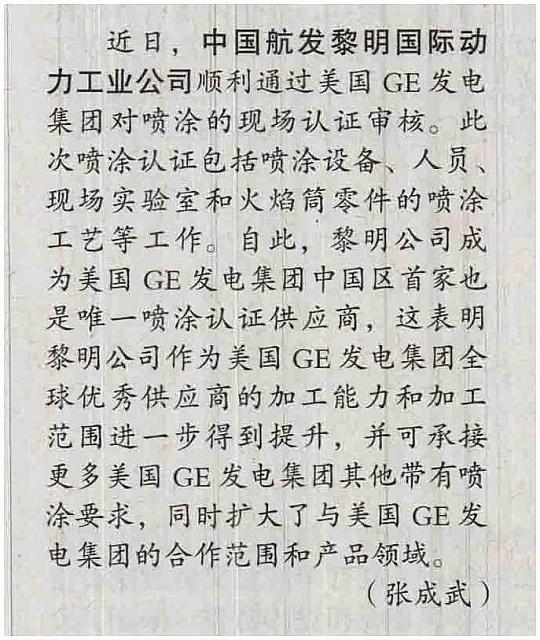 近日，中国航发黎明国际动
力工业公司顺利通过美国 GE 发电
集团对喷涂的现场认证审核。此
次喷涂认证包括喷涂设备、人员、
现场实验室和火焰筒零件的喷涂
工艺等工作。自此，黎明公司成
为美国 GE 发电集团中国区首家也
是唯一喷涂认证供应商，这表明
黎明公司作为美国 GE 发电集团全
球优秀供应商的加工能力和加工
范围进一步得到提升，并可承接
更多美国 GE 发电集团其他带有喷
涂要求，同时扩大了与美国 GE 发
电集团的合作范围和产品领域。
（张成武）